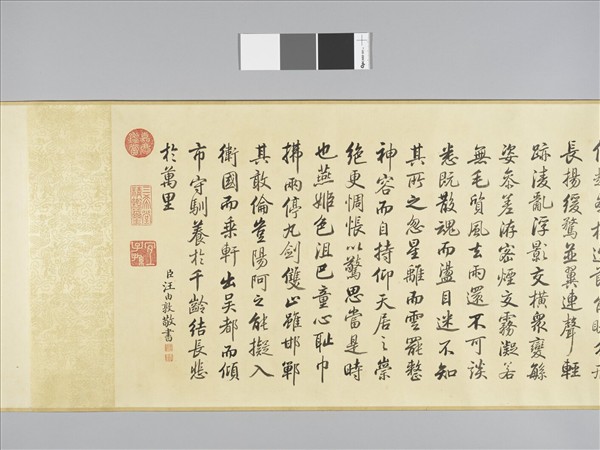 長揚緩鶩並翼連聲輕
跡淩亂浮影交橫衆變繇
姿叅差洊密煙交霧凝若
無毛質風去雨還不可談
悉既散魂而盪目迷不知
其所之忽星離而雲罷整
神容而自持仰天居之崇
絕更惆悵以驚思當是時
也燕姬色沮巴童心耻巾
拂兩停丸劍雙止雖邯鄲
其敢倫豈陽阿之能擬入
衛國而乘軒出吳都而傾
市守馴養於千齡結長悲
於萬里
臣汪由敦敬書
三希堂精鑑璽
宜子孫